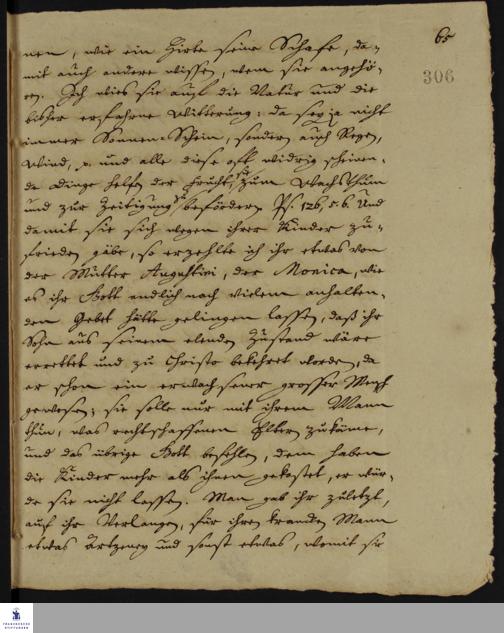 65
306
nen, wie ein Hirte seine Schafe, da-
mit auch andere wissen, wem sie angehö-
ren. Ich wies sie auf die Natur und die
bisher erfahrne Witterung: da sey ja nicht
immer Sonnen-Schein, sondern auch Regen,
Wind, p. und alle diese oft widrig scheinen-
de Dinge helfen der Frucht, zum Wachsthum
und zur Zeitigung befördern Ps. 126, 5. 6. Und
damit sie sich wegen ihrer Kinder zu-
frieden gäbe, so erzehlte ich ihr etwas von
der Mutter Augustini, der Monica, wie
es ihr Gott endlich nach vielem anhalten-
den Gebet hätte gelingen lassen, daß ihr
Sohn aus seinem elenden Zustand wäre
errettet und zu Christo bekehret worden, da
er schon ein erwachsener grosser Mensch
gewesen; sie solle nur mit ihrem Mann
thun, was rechtschaffenen Eltern zukäme,
und das übrige Gott befehlen, dem haben
die Kinder mehr als ihnen gekostet, er wür-
de sie nicht lassen. Man gab ihr zuletzt,
auf ihr Verlangen, für ihren krancken Mann
etwas Artzeney und sonst etwas, womit sie
FRANCKESCHE
STIFTUNGEN